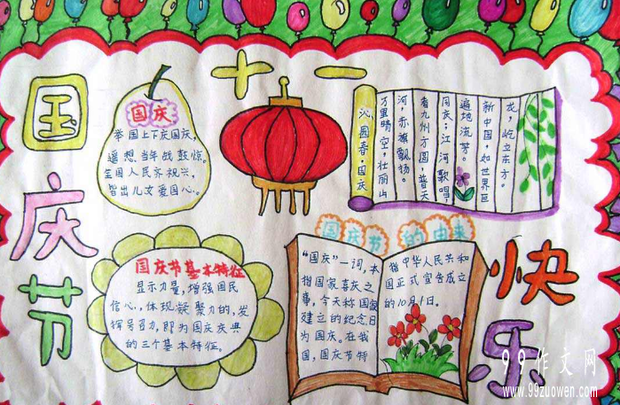 十一
国庆节
快乐
国庆
举国上下庆国庆,
遥想当年战鼓惊。
全国人民齐祝兴,
智出儿女爱国心。
沁园春·国庆
万里晴空,壮丽山
河,赤旗飘扬。
看九州方圆,普天
同庆;江河歌唱
遍地流芳。
新中国,如世界巨
龙,屹立东方。
国庆节基本特征
显示力量,增强国民
信心,体现凝聚力的,发
挥号召力,即为国庆庆典
的三个基本特征。
国庆节的由来
"国庆"一词,本
指国家喜庆之
事,今天称国家
建立的纪念日
为国庆。在我
国,国庆节特
指中华人民共和
国正式宣告成立
的10月1日。
99作文网
www.99zuowen.com